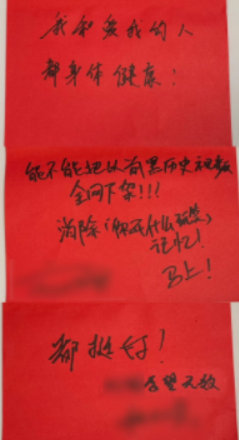 我和爱我的人
都身体健康！
能不能把以前黑历史
全网下架!!!
消除（你开什么玩笑）
记忆！
马上！
都挺好！
希望无数